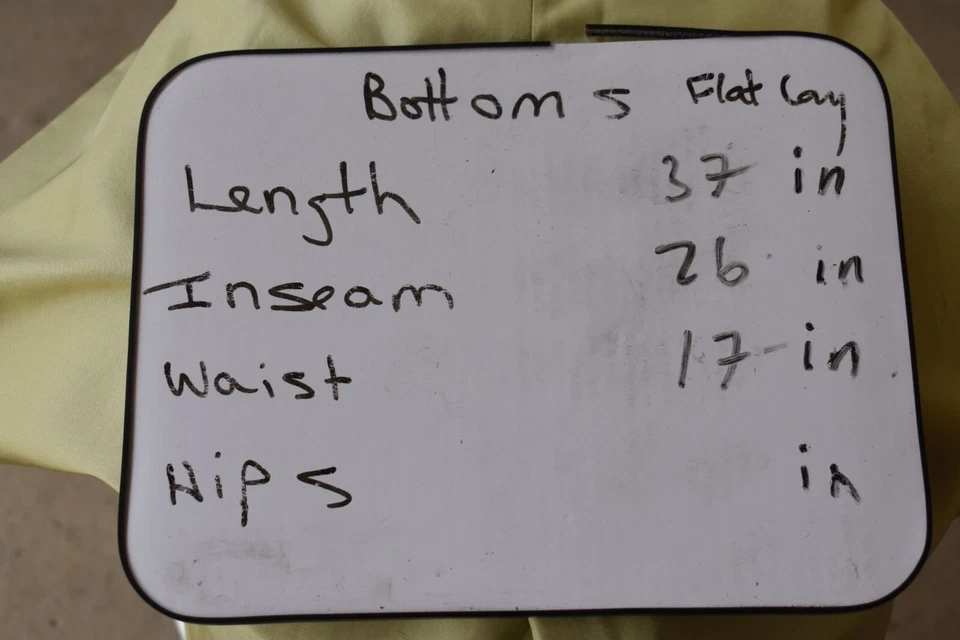 Bottoms Flat Lay
Length 37 in
Inseam 26 in
Waist 17 in
Hips in